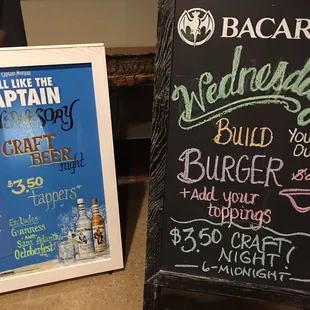 Captain Morgan
LL LIKE THE
APTAIN
CRAFT
BEER night
$3.50
tappers
Excludes
Guinness
AND
Sam Adams
Octoberfest
BACAR
Wednesda
BUILD You
BURGER
+Add your
toppings
$3.50 CRAFT
NIGHT
6-MIDNIGHT